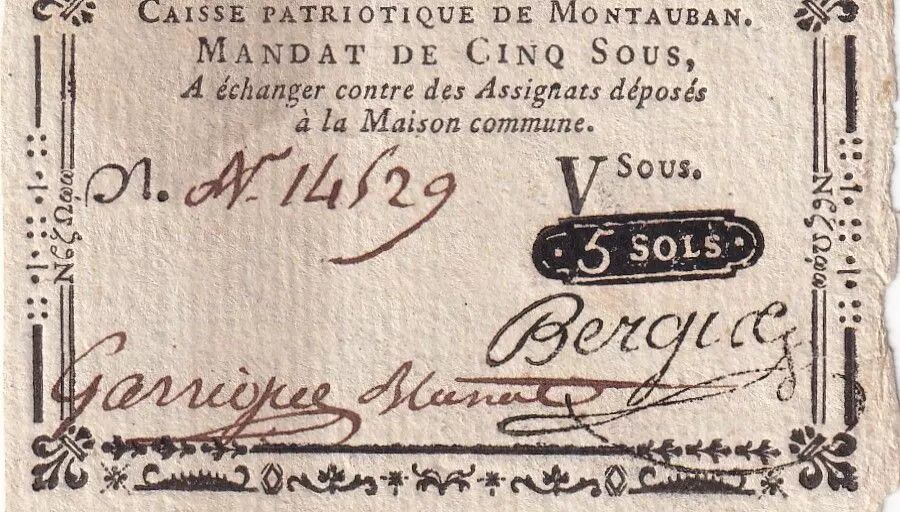 CAISSE PATRIOTIQUE DE MONTAUBAN.
MANDAT DE CINQ SOUS,
A échanger contre des Assignats déposés
à la Maison commune.
N. Nr. 14529
V SOUS.
5 SOLS
Garrigue